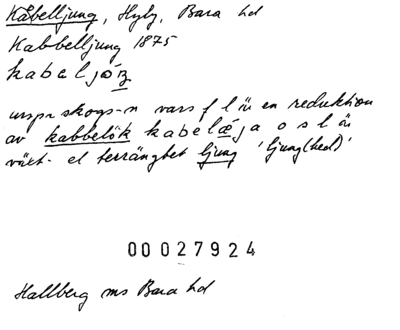 Kåbelljung, Hyby, Bara hd
Kabbelljung 1875
kabeljóŋ
urspr skogs-n vars f l är en reduktion
av kabbelök kabelǽja o s l är
växt- el terrängbet ljung 'ljung(hed)'
00027924
Hallberg ms Bara hd